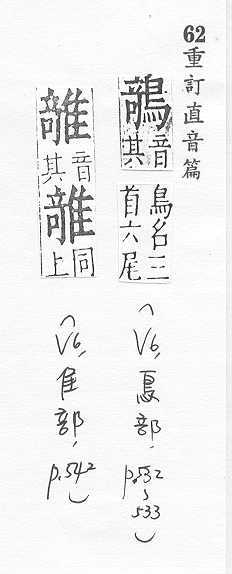 62重訂直音篇
鵸音其鳥名三首六尾(V6, 鳥部, p.532~533)
音其 同上(V6, 隹部, p.542)